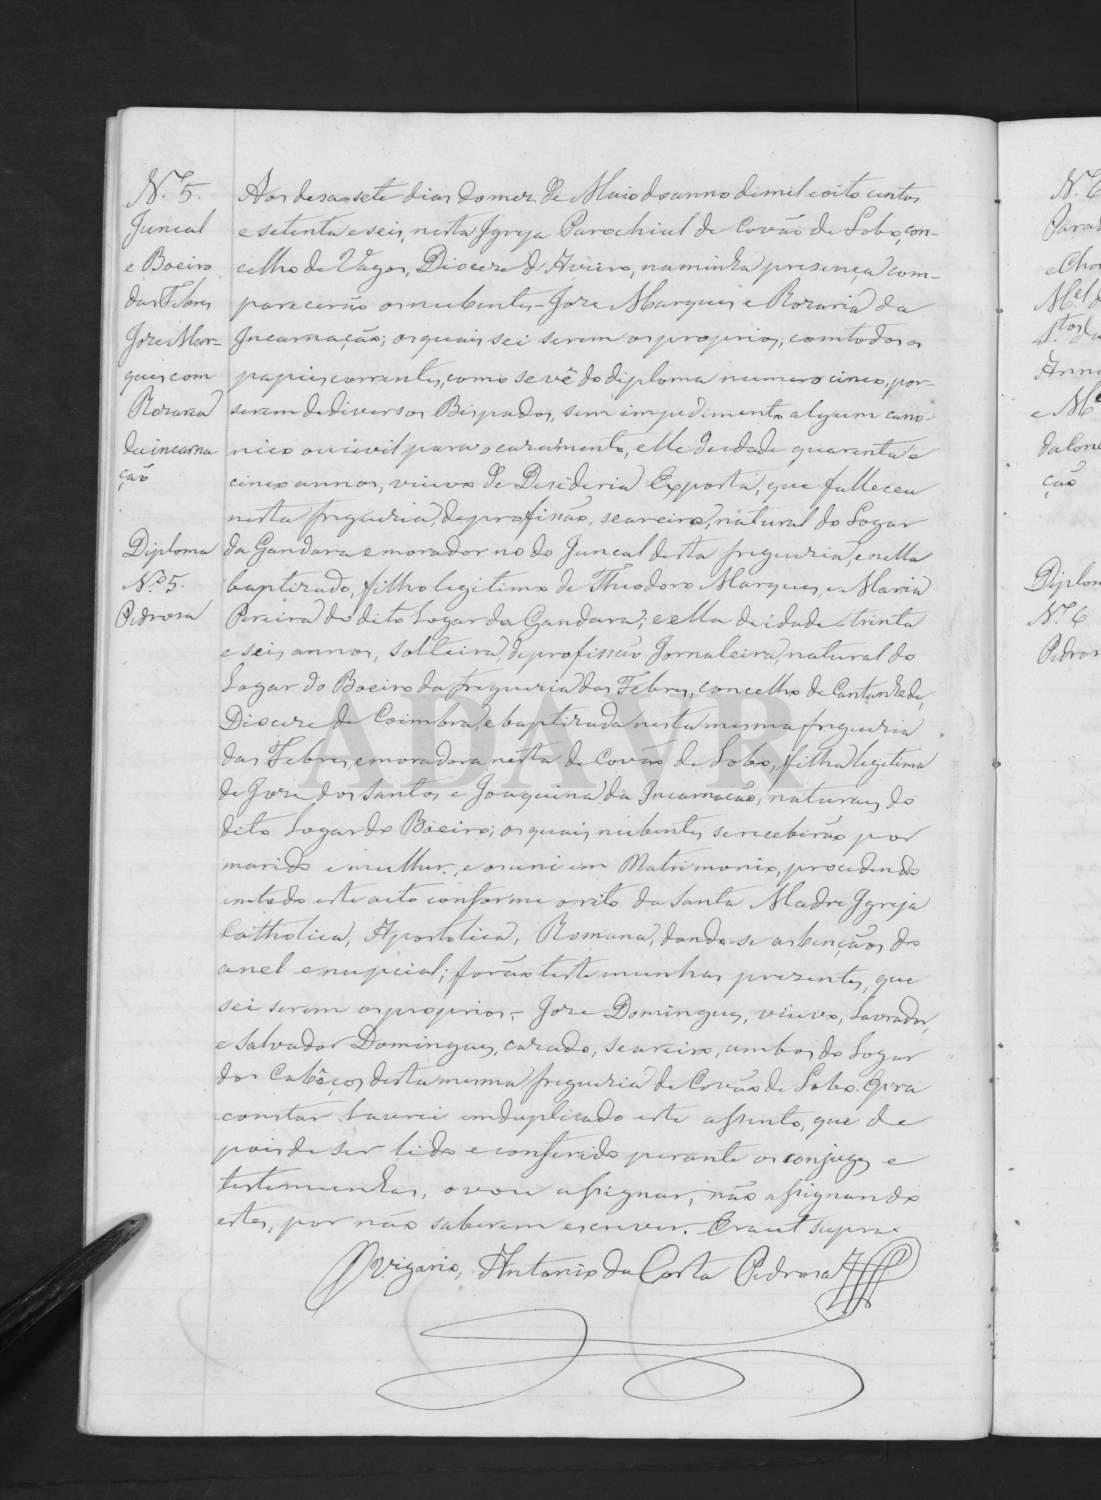 N.º 5.
Juncal
e Boeiro
das Febres
Joze Mar=
ques com
Rozaria
da incarna
ção
Diploma
N.º 5.
Pedrosa
Aos desasete dias do mez de Maio do anno de mil e oito centos
e setenta e seis, nesta Igreja Parochial de Covão de Lobo, con-
celho de Vagos, Diocese d'Aveiro, na minha presença com-
parecerão os nubentes - Joze Marques e Rozaria da
Incarnação; os quais sei serem os proprios, com todos os
papeis correntes, como se vê do diploma numero cinco, por-
serem de diversos Bispados, sem impedimento algum cano-
nico ou civil para o cazamento, elle de idade quarenta e
cinco annos, viuvo de Desideria Exposta, que falleceu
nesta freguezia, de profissão, seareiro, natural do Logar
da Gandara e morador no do Juncal desta freguezia, e nella
baptizado, filho legitimo de Theodoro Marques, e Maria
Pereira do dito Logar da Gandara; e ella de idade trinta
e seis annos, solteira, de profissão Jornaleira, natural do
Logar do Boeiro da freguezia das Febres, concelho de Cantanhede,
Diocese de Coimbra, e baptizada nesta mesma freguezia
das Febres, e moradora nesta de Covão de Lobo, filha legitima
de Joze dos Santos e Joaquina da Incarnação, naturaes do
dito Logar do Boeiro; os quais nubentes se receberão por
marido e mulher, e os uni em Matrimonio, procedendo
em todo este acto conforme o rito da Santa Madre Igreja
Catholica, Apostolica, Romana, dando-se as benções do
anel e nupcial; forão testemunhas prezentes, que
sei serem os proprios - Joze Domingues, viuvo, Lavrador,
e Salvador Domingues, cazado, seareiro, ambos do Logar
dos Cabêços desta mesma freguezia de Covão de Lobo. E p.ra
constar lavrei em duplicado este assento, que de
pois de ser lido e conferido perante os conjuges e
testemunhas, o vou assignar, não assignando
estes, por não saberem escrever. Era ut supra.
O Vigario, Antonio da Costa Pedrosa
N.º 6
Pedros
Diplom
N.º 6
ção
ADAVR